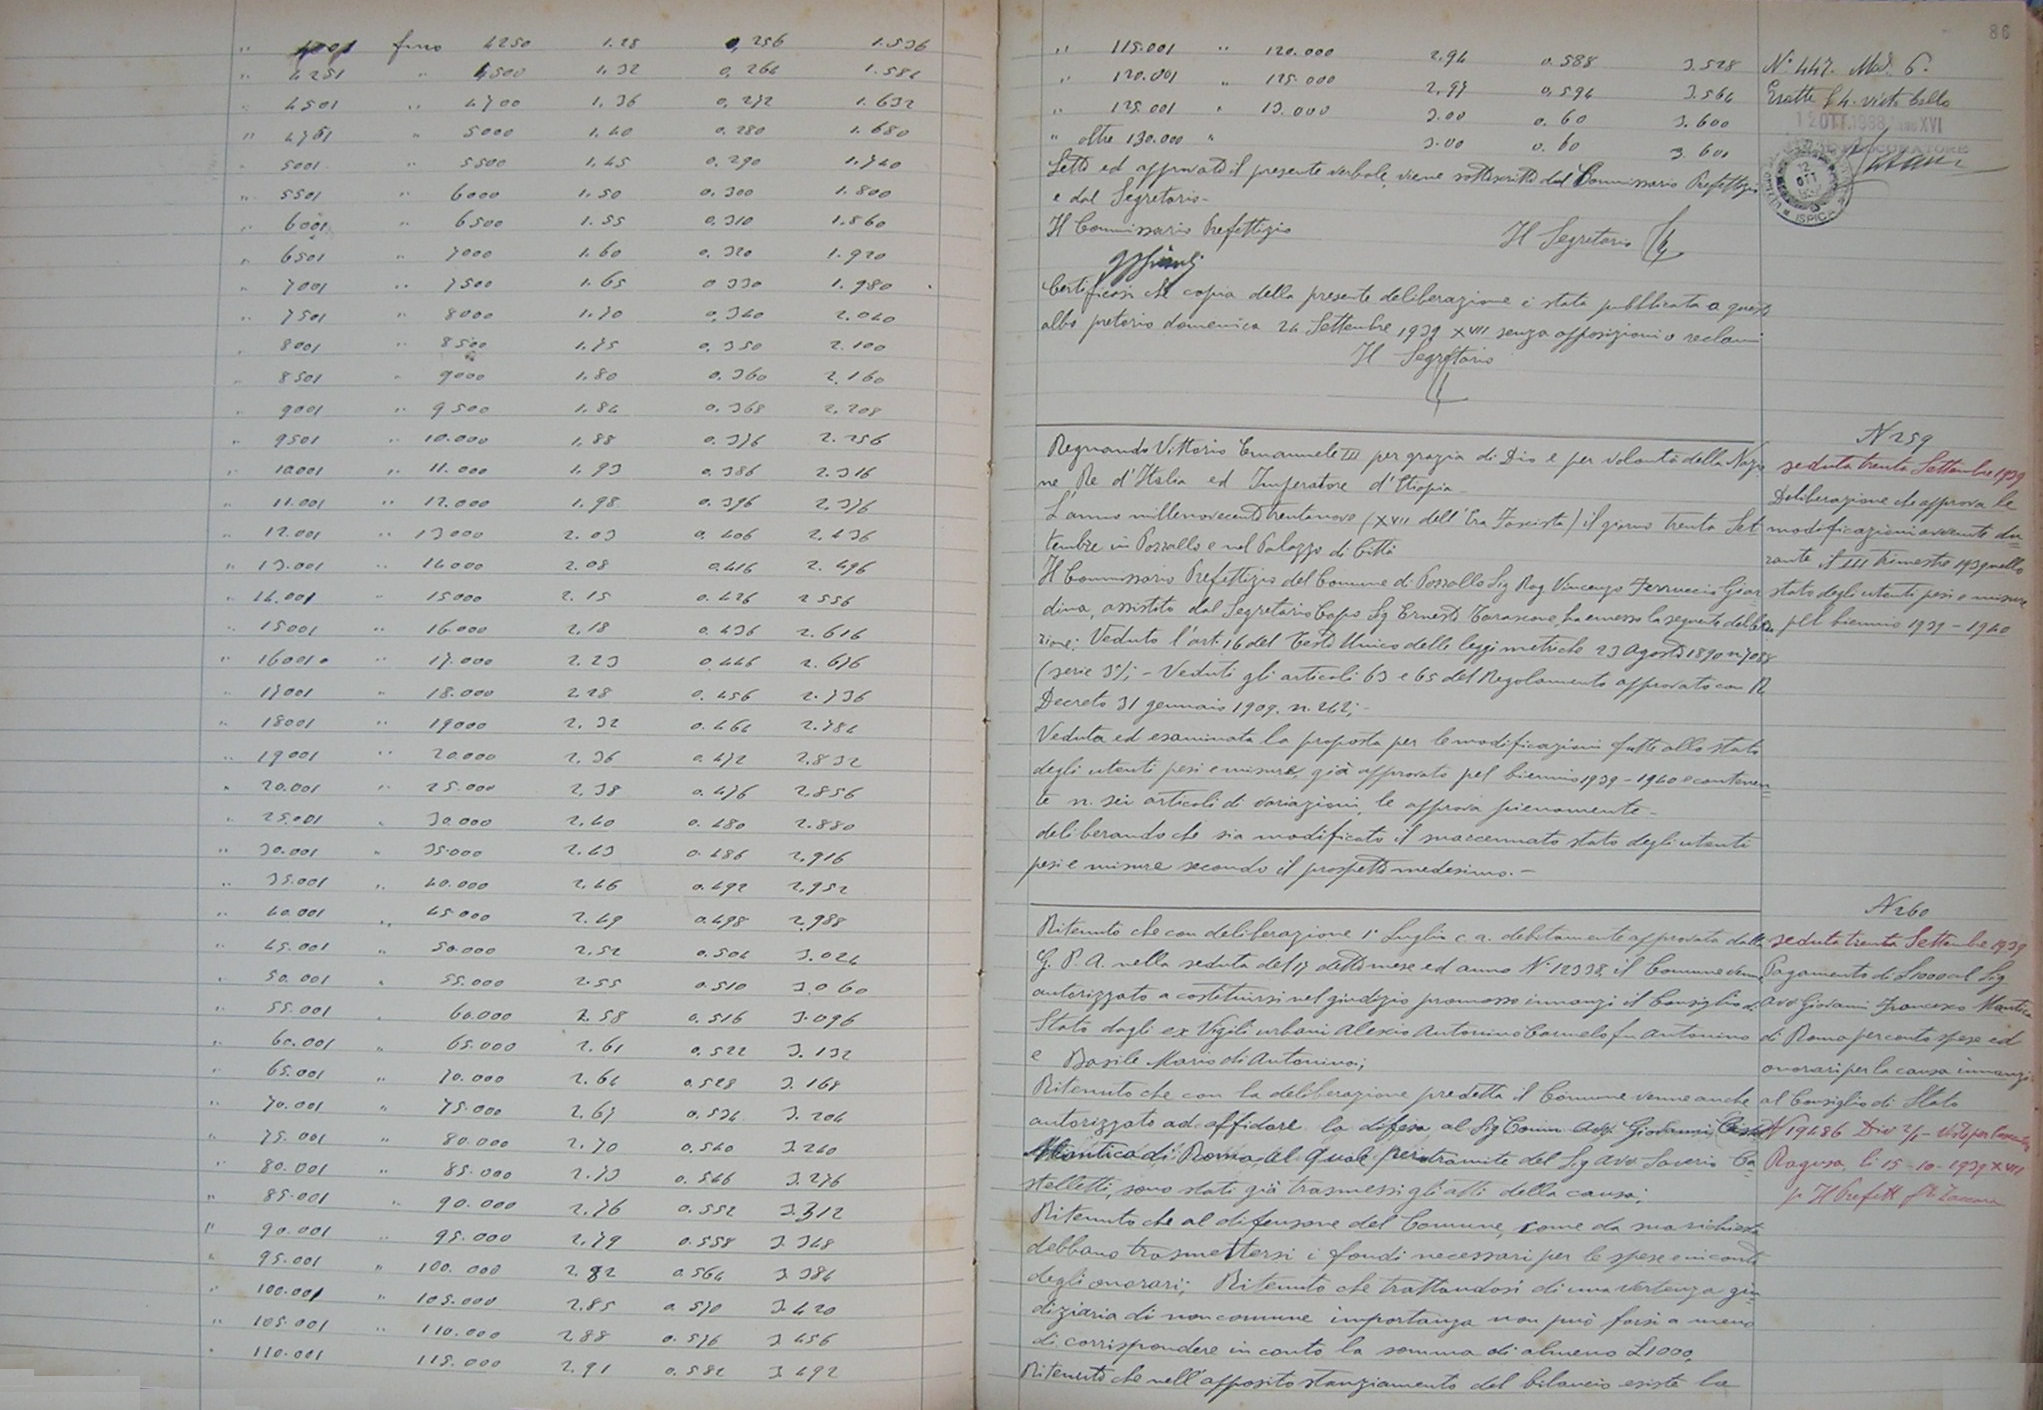 " 4001 fino 4250 1.28 0,256 1.536
" 4251 " 4500 1,32 0,264 1.584
" 4501 " 4700 1,36 0,272 1.632
" 4701 " 5000 1.40 0.280 1.680
" 5001 " 5500 1,45 0,290 1,740
" 5501 " 6000 1,50 0.300 1.800
" 6001 " 6500 1.55 0,310 1.860
" 6501 " 7000 1.60 0,320 1.920
" 7001 " 7500 1.65 0 330 1.980
" 7501 " 8000 1.70 0,340 2.040
" 8001 " 8500 1.75 0,350 2.100
" 8501 " 9000 1,80 0.360 2.160
" 9001 " 9500 1,84 0,368 2,208
" 9501 " 10.000 1,88 0.376 2.256
" 10.001 " 11.000 1,93 0,386 2.316
" 11.001 " 12.000 1,98 0.396 2,376
" 12.001 " 13000 2.03 0,406 2,436
" 13.001 " 14000 2.08 0.416 2.496
" 14.001 " 15000 2.15 0.426 2 556
" 15001 " 16.000 2,18 0.436 2.616
" 16001 " 17.000 2.23 0,446 2.676
" 17001 " 18.000 2.28 0.456 2.736
" 18001 " 19000 2,32 0.464 2.784
" 19001 " 20.000 2,36 0.472 2,832
" 20.001 " 25.000 2,38 0.476 2,856
" 25.001 " 30.000 2,40 0.480 2.880
" 30.001 " 35.000 2.43 0.486 2,916
" 35.001 " 40.000 2,46 0.492 2,952
" 40.001 " 45.000 2.49 0.498 2,988
" 45.001 " 50.000 2,52 0,504 3.024
" 50.001 " 55.000 2.55 0.510 3.060
" 55.001 " 60.000 2.58 0,516 3.096
" 60.001 " 65.000 2,61 0,522 3.132
" 65.001 " 70.000 2.64 0.528 3.168
" 70.001 " 75.000 2,67 0,534 3.204
" 75.001 " 80.000 2.70 0,540 3.240
" 80.001 " 85.000 2.73 0.546 3.276
" 85.001 " 90.000 2.76 0.552 3.312
" 90.001 " 95.000 2.79 0.558 3.348
" 95.001 " 100.000 2.82 0.564 3 384
" 100.001 " 105.000 2.85 0.570 3.420
" 105.001 " 110.000 2 88 0.576 3 456
" 110.001 115.000 2.91 0.582 3 492
86
" 115.001 " 120.000 2.94 0.588 3.528
" 120.001 " 125.000 2,97 0,594 3.564
" 125.001 " 13.000 3.00 0.60 3.600
" oltre 130.000 " 3.00 0.60 3.600
Letto ed approvato il presente verbale, viene sottoscritto dal Commissario Prefettizio
e dal Segretario-
Il Commissario Prefettizio Il Segretario
Certificasi che copia della presente deliberazione è stata pubblicata a questo
albo pretorio domenica 24 Settembre 1939 XVII senza opposizioni o reclami
Il Segretario
N. 447. Mod. 6.
Esatte £ 4. visto bollo
12 OTT. 1938 ANNO XVI
PROCURATORE
ISPICA
Regnando Vittorio Emanuele III per grazia di Dio e per volontà della Nazio
ne Re d'Italia ed Imperatore d'Etiopia-
L'anno millenovecentotrentanove (XVII dell'Era Fascista) il giorno trenta Set
tembre in Pozzallo e nel Palazzo di Città
Il Commissario Prefettizio del Comune di Pozzallo Sig Rag Vincenzo Ferruccio Giar
dina, assistito dal Segretario Capo Sig Ernesto Tarascone, ha emesso la seguente delibera
zione: Veduto l'art. 16 del Testo Unico delle leggi metriche 23 Agosto 1890 n 7088
(serie 3ª); - Veduti gli articoli 63 e 65 del Regolamento approvato con R
Decreto 31 gennaio 1909. n. 242;-
Veduta ed esaminata la proposta per le modificazioni fatte allo stato
degli utenti pesi e misure, già approvato pel biennio 1939-1940 e contenen=
te n. sei articoli di variazioni, le approva pienamente-
deliberando che sia modificato il suaccennato stato degli utenti
pesi e misure secondo il prospetto medesimo.-
N 259
seduta trenta Settembre 1939
Deliberazione che approva le
modificazioni avvenute du=
rante il III trimestre 1939 nello
stato degli utenti pesi e misure
pel biennio 1939-1940
Ritenuto che con deliberazione 1° Luglio c.a. debitamente approvata dalla
G. P. A. nella seduta del 17 detto mese ed anno N. 12338, il Comune venne
autorizzato a costituirsi nel giudizio promosso innanzi il Consiglio di
Stato dagli ex Vigili urbani Alescio Antonino Carmelo fu Antonino
e Basile Mario di Antonino;
Ritenuto che con la deliberazione predetta il Comune venne anche
autorizzato ad affidare la difesa al Sig Comm Avv. Giovanni
Mantica di Roma, al quale per tramite del Sig Avv. Saverio Ca
stelletti, sono stati già trasmessi gli atti della causa;
Ritenuto che al difensore del Comune, come da sua richiesta
debbano trasmettersi i fondi necessari per le spese e in conto
degli onorari; Ritenuto che trattandosi di una vertenza giu=
diziaria di non comune importanza non può farsi a meno
di corrispondere in conto la somma di almeno £1000,
Ritenuto che nell'apposito stanziamento del bilancio esiste la
N 260
seduta trenta Settembre 1939
Pagamento di £1000 al Sig
Avv Giovanni Francesco Mantica
di Roma per conto spese ed
onorari per la causa innanzi
al Consiglio di Stato
N 19486 Div 2/1 - Visto per
Ragusa, li 15-10-1939 XVII
p. Il Prefetto